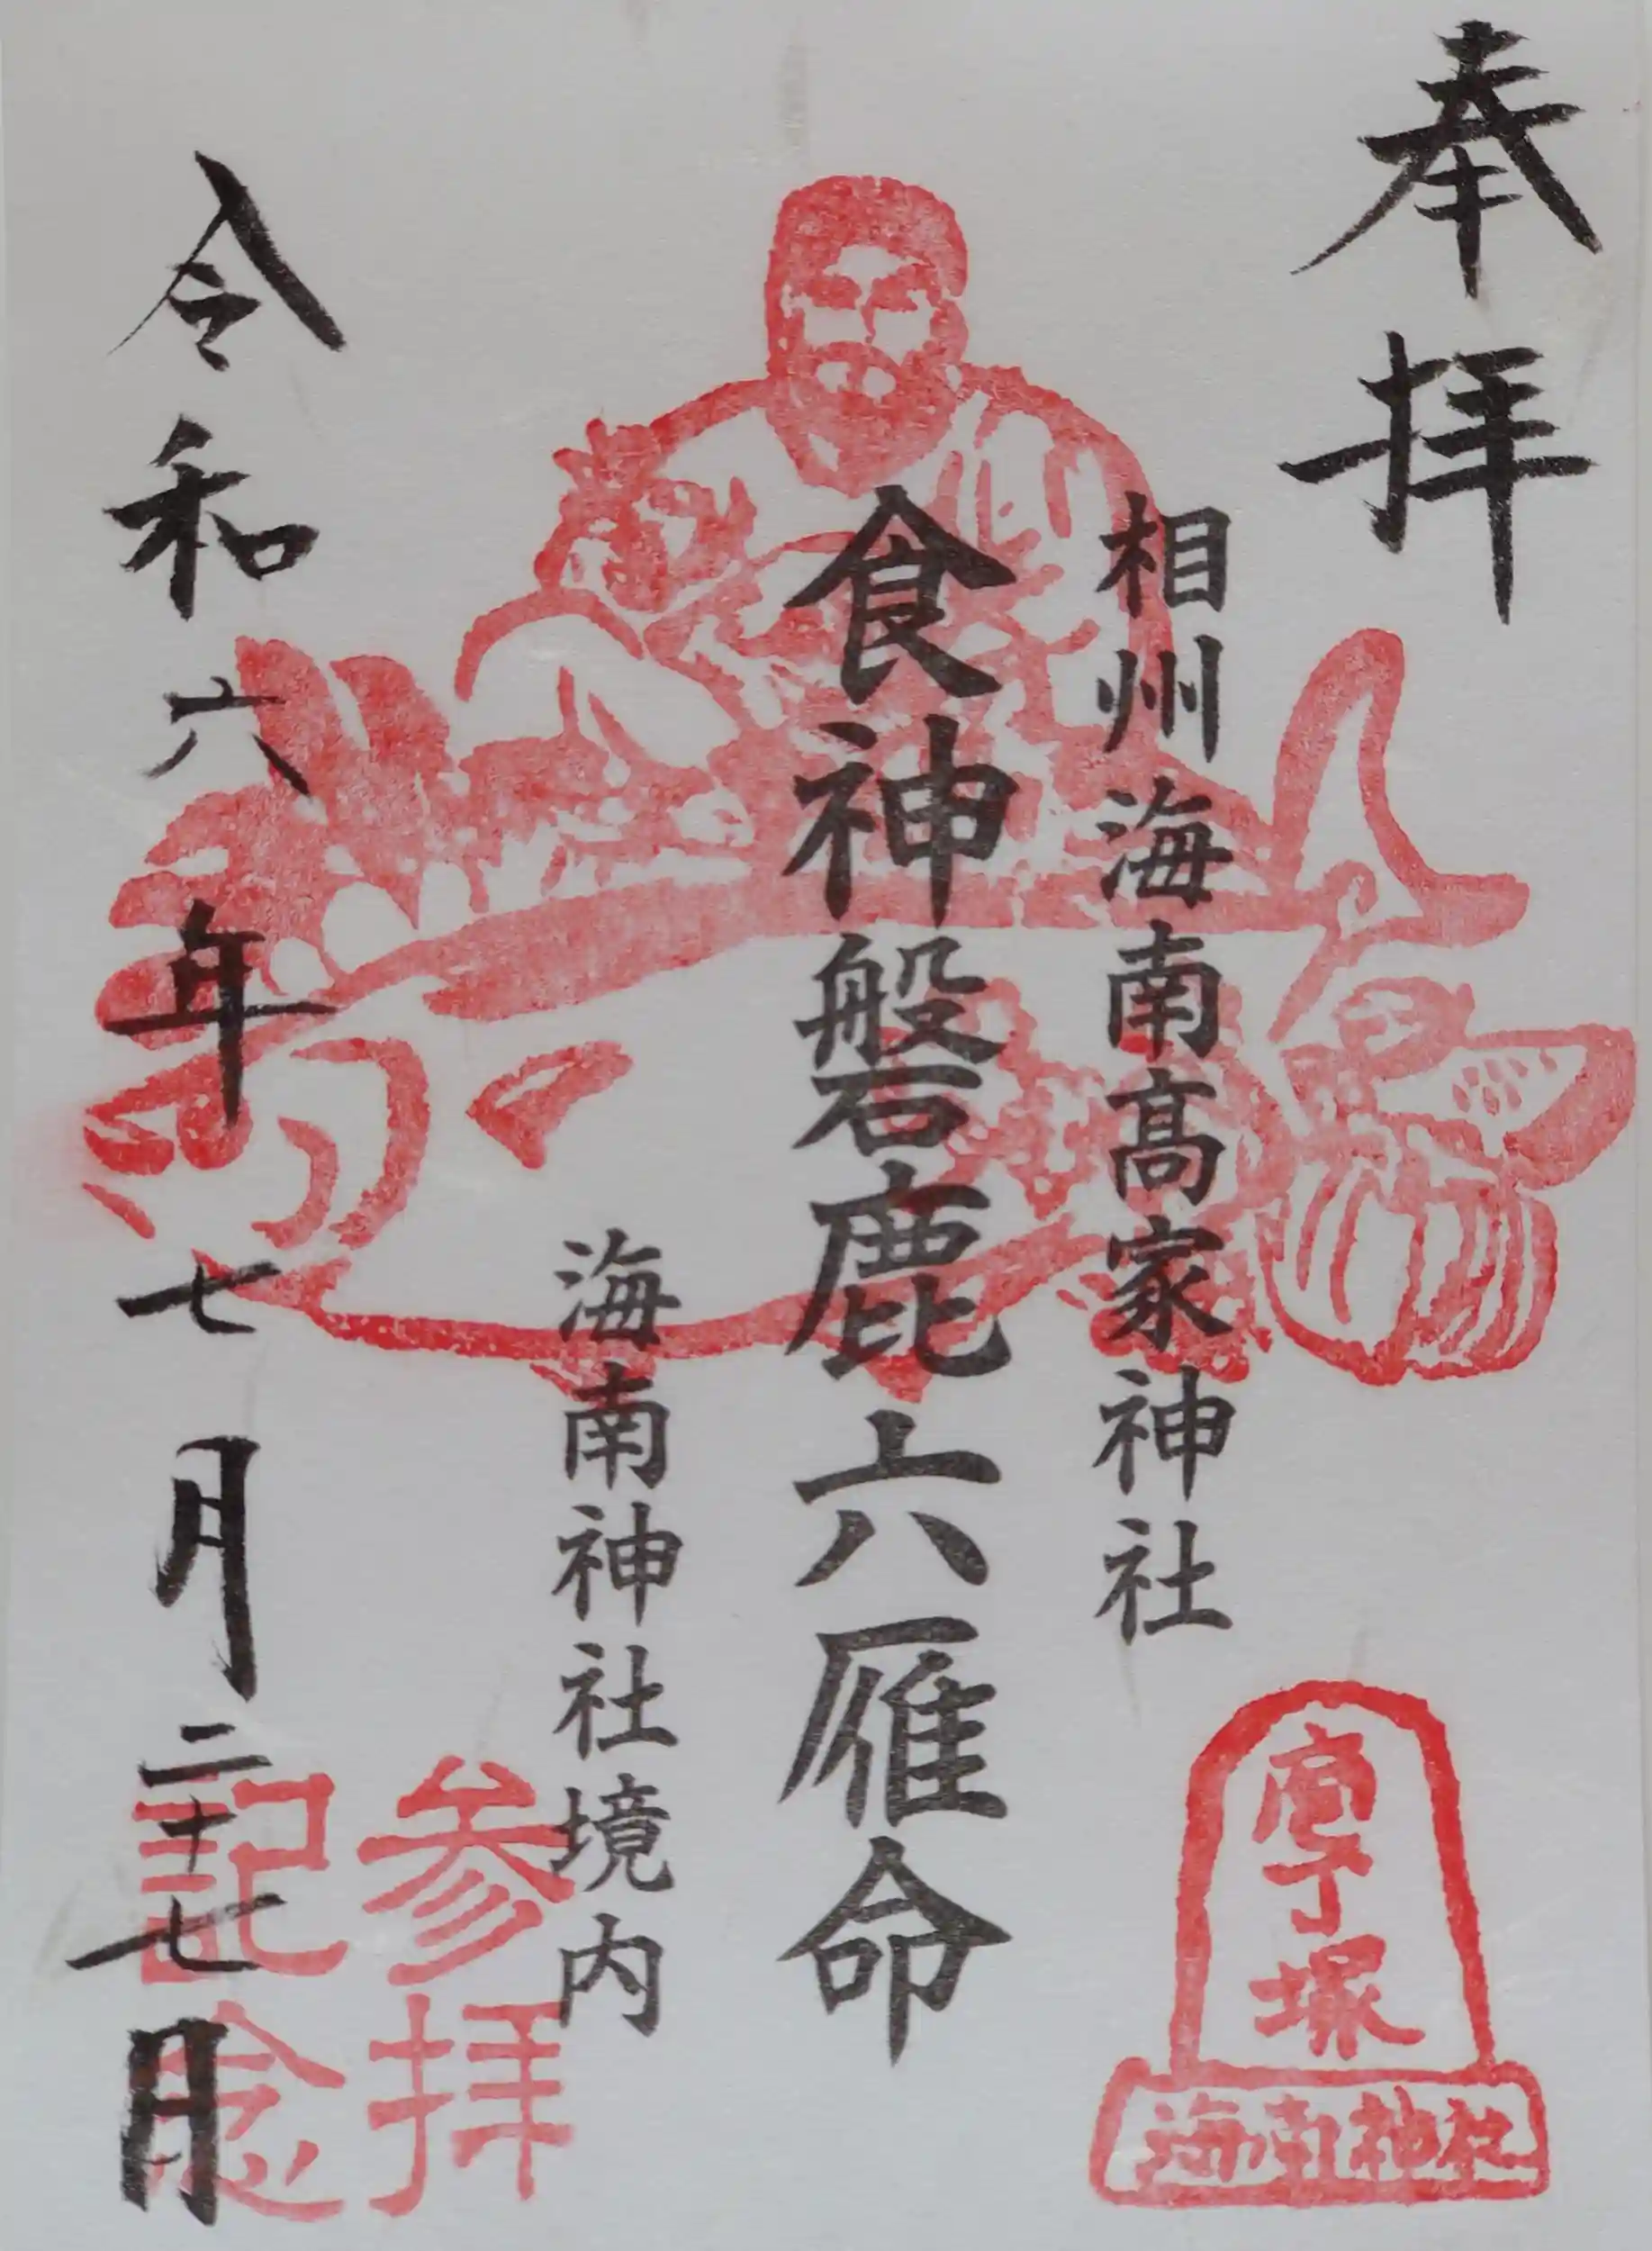 奉拝
相州海南髙家神社
食神磐鹿六雁命
海南神社境内
令和六年七月二十七日
参拝
記念
庖丁塚
海南神社